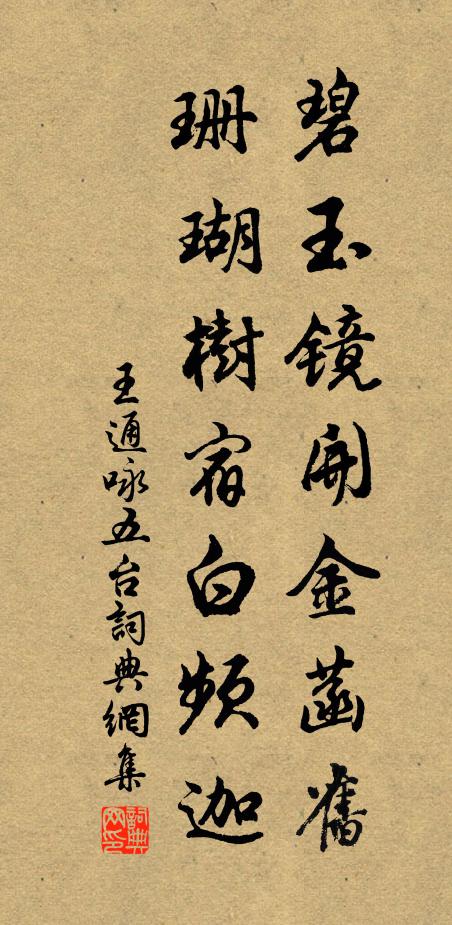 碧玉镜開金菡舊
珊瑚樹宿白頻迦
王通咏五台詞典網集
詞典網印